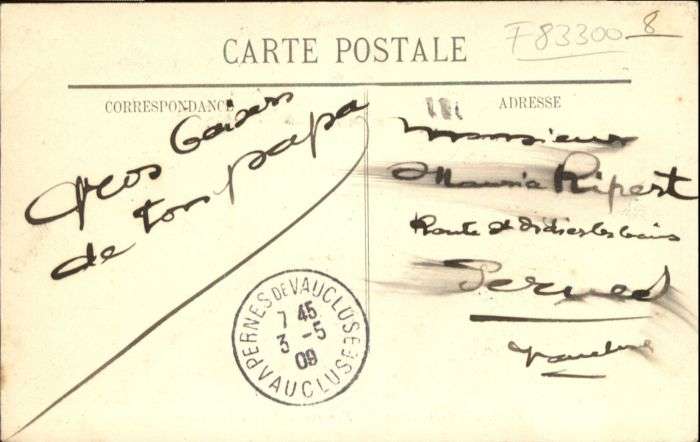 F83300-8
CARTE POSTALE
CORRESPONDANCE
ADRESSE
Gros baisers
de ton papa
Monsieur
Maurice Ripert
Route St Didier les bains
Pernes
Vaucluse
PERNES DE VAUCLUSE
7 45
3 - 5
09
VAUCLUSE